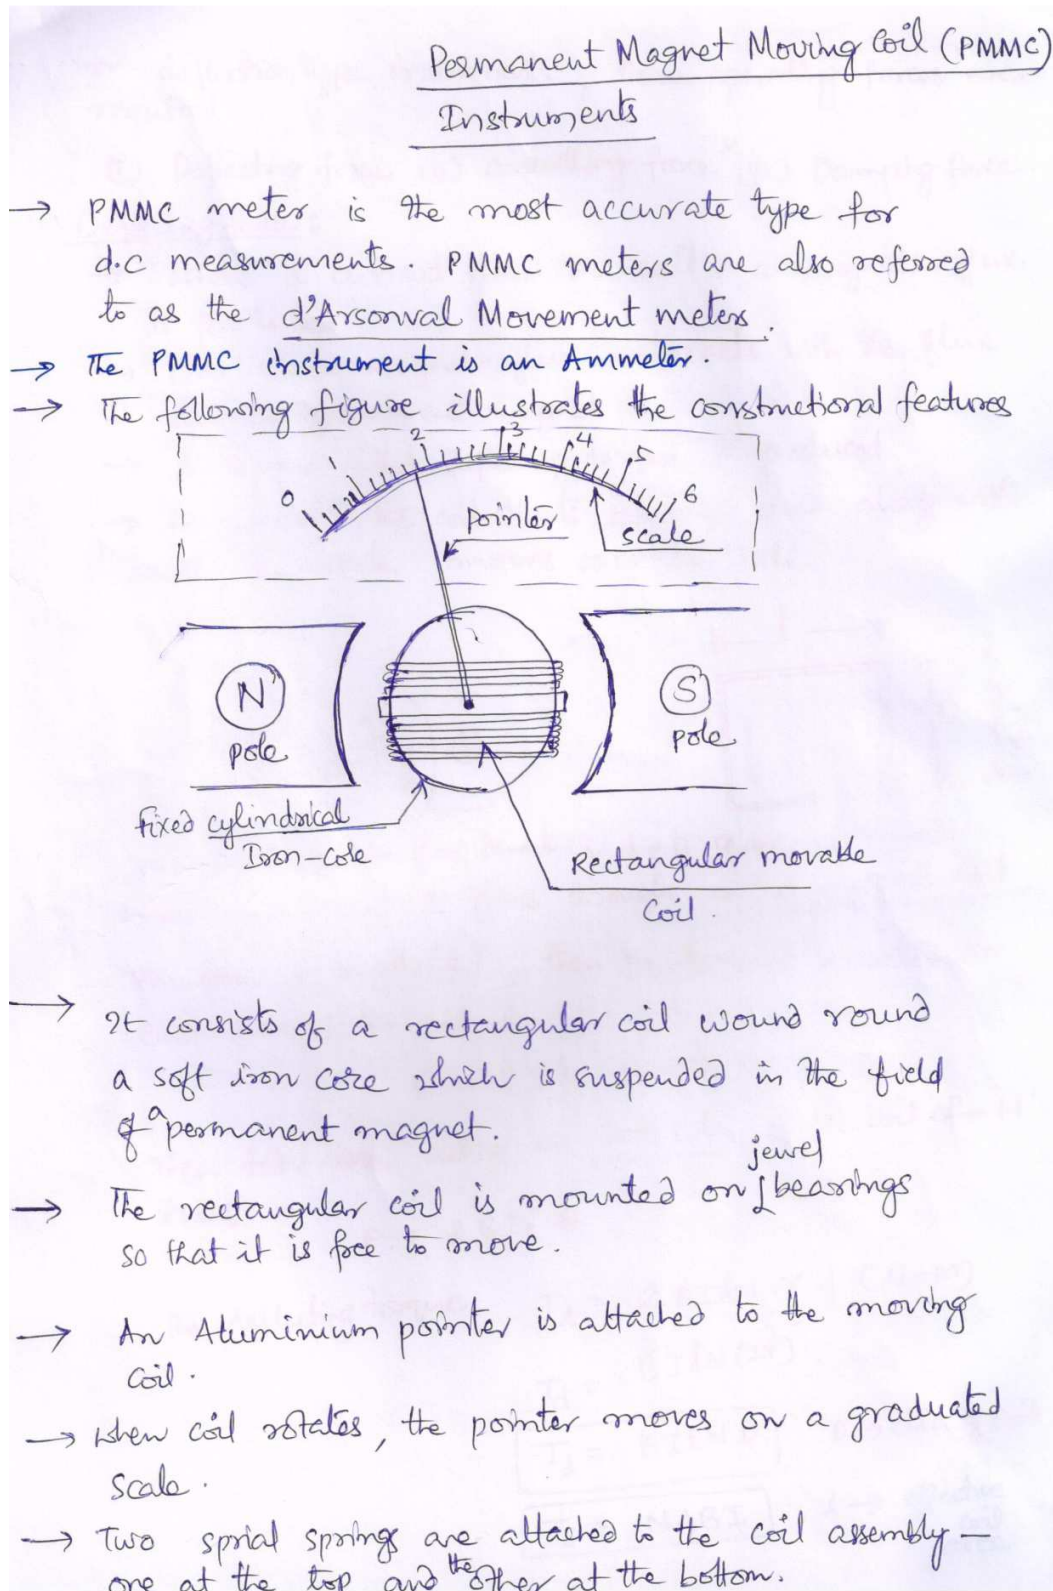 Permanent Magnet Moving Coil (PMMC)
Instruments
→ PMMC meter is the most accurate type for
d.c measurements. PMMC meters are also referred
to as the d'Arsonval Movement meters.
→ The PMMC instrument is an Ammeter.
→ The following figure illustrates the constructional features
0 1 2 3 4 5 6
pointer
scale
N S
pole pole
fixed cylindrical
Iron-core
Rectangular movable
Coil.
→ It consists of a rectangular coil wound round
a soft iron core which is suspended in the field
of a permanent magnet.
→ The rectangular coil is mounted on jewel bearings
so that it is free to move.
→ An Aluminium pointer is attached to the moving
coil.
→ when coil rotates, the pointer moves on a graduated
scale.
→ Two sprial springs are attached to the coil assembly –
one at the top and the other at the bottom.